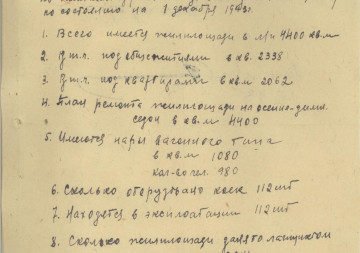 по состоянию на 1 декабря 1943г.
1. Всего имеется жилплощади в м/п 4400 кв.м
2. В т.ч. под общежитиями в кв. 2338
3. В т.ч. под квартирами в кв.м 2062
4. План ремонта жилплощади на осенне-зимн.
сезон в кв.м 4400
5. Имеются нары вагонного типа
в кв.м 1080
кол-во чел. 980
6. Сколько оборудовано коек 112 шт
7. Находится в эксплоатации 112 шт
8. Сколько жилплощади занято